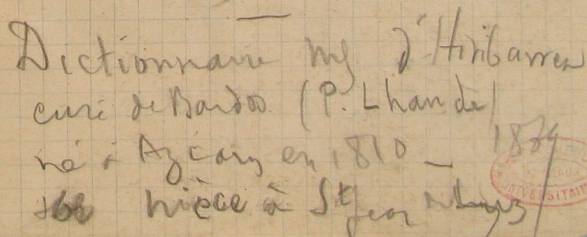 Dictionnaire ms d'Hiribarren
curé de Bardos (P. Lhande)
né à Azcain en 1810 — 18
nièce à St Jean de Luz